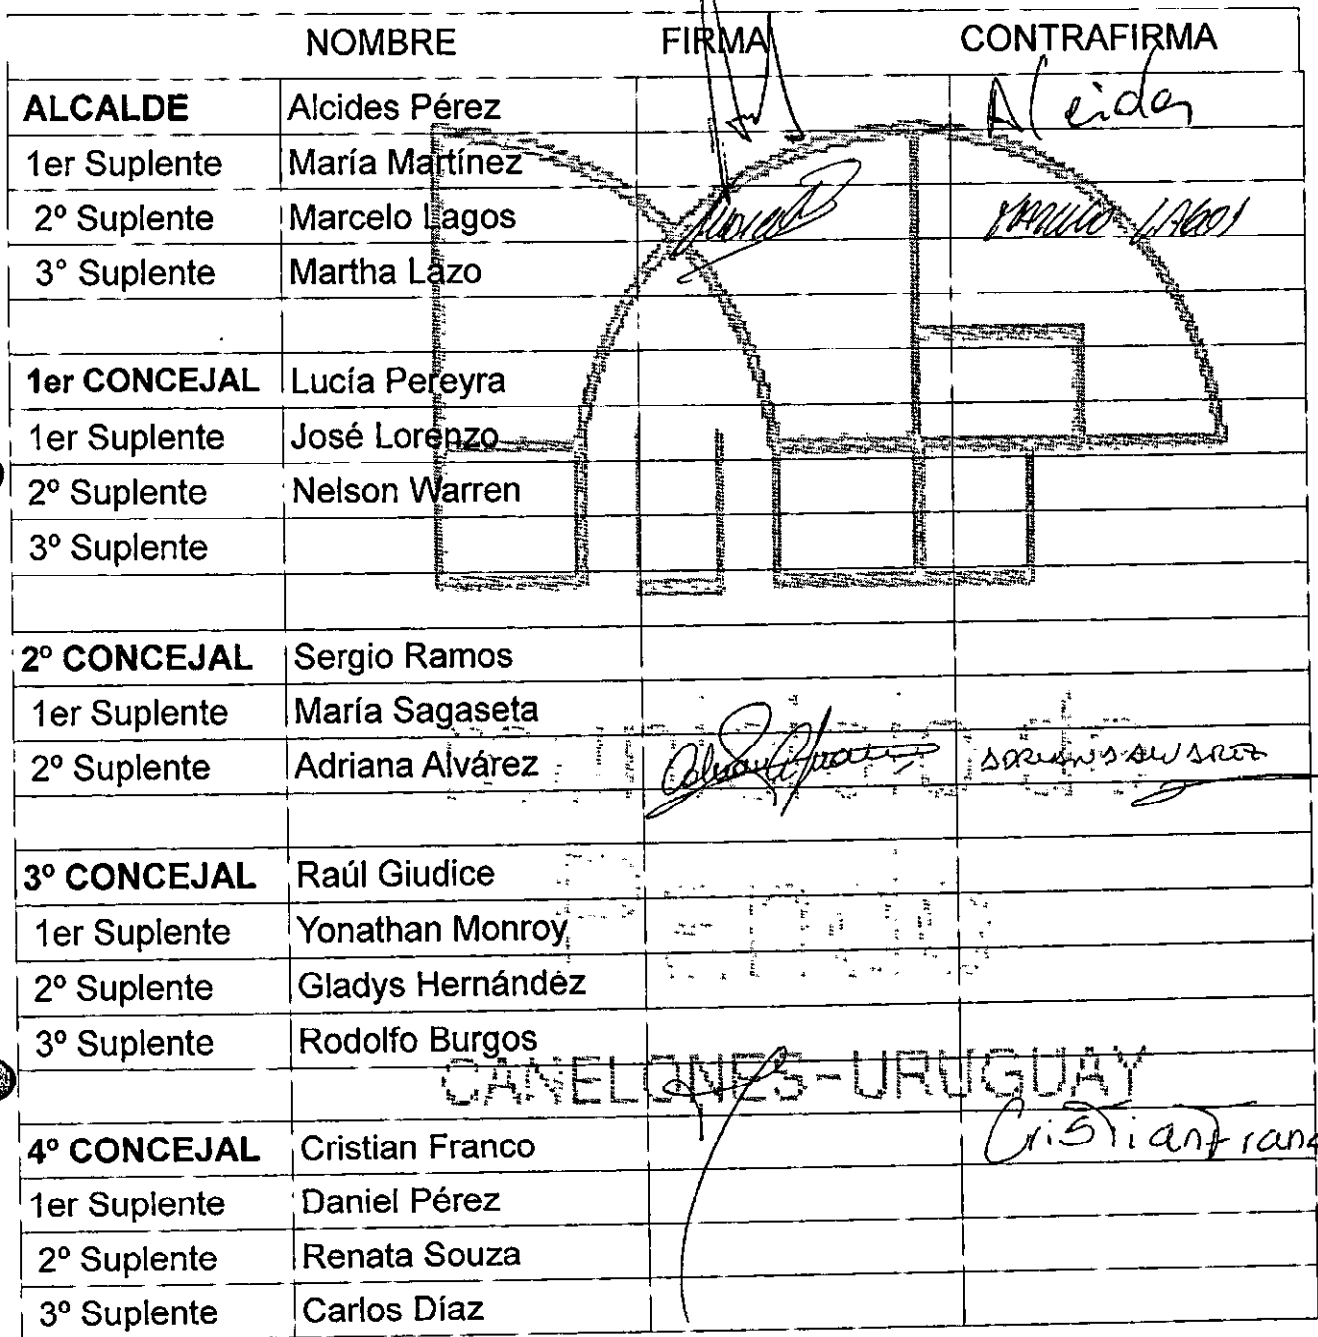 NOMBRE FIRMA CONTRAFIRMA
ALCALDE Alcides Pérez
1er Suplente María Martínez
2º Suplente Marcelo Lagos MARCELO LAGOS
3° Suplente Martha Lazo
1er CONCEJAL Lucía Pereyra
1er Suplente José Lorenzo
2º Suplente Nelson Warren
3º Suplente
2º CONCEJAL Sergio Ramos
1er Suplente María Sagaseta
2º Suplente Adriana Alvárez ADRIANA ALVAREZ
3º CONCEJAL Raúl Giudice
1er Suplente Yonathan Monroy
2º Suplente Gladys Hernández
3º Suplente Rodolfo Burgos
CANELONES-URUGUAY
4º CONCEJAL Cristian Franco Cristian Franc
1er Suplente Daniel Pérez
2º Suplente Renata Souza
3º Suplente Carlos Díaz